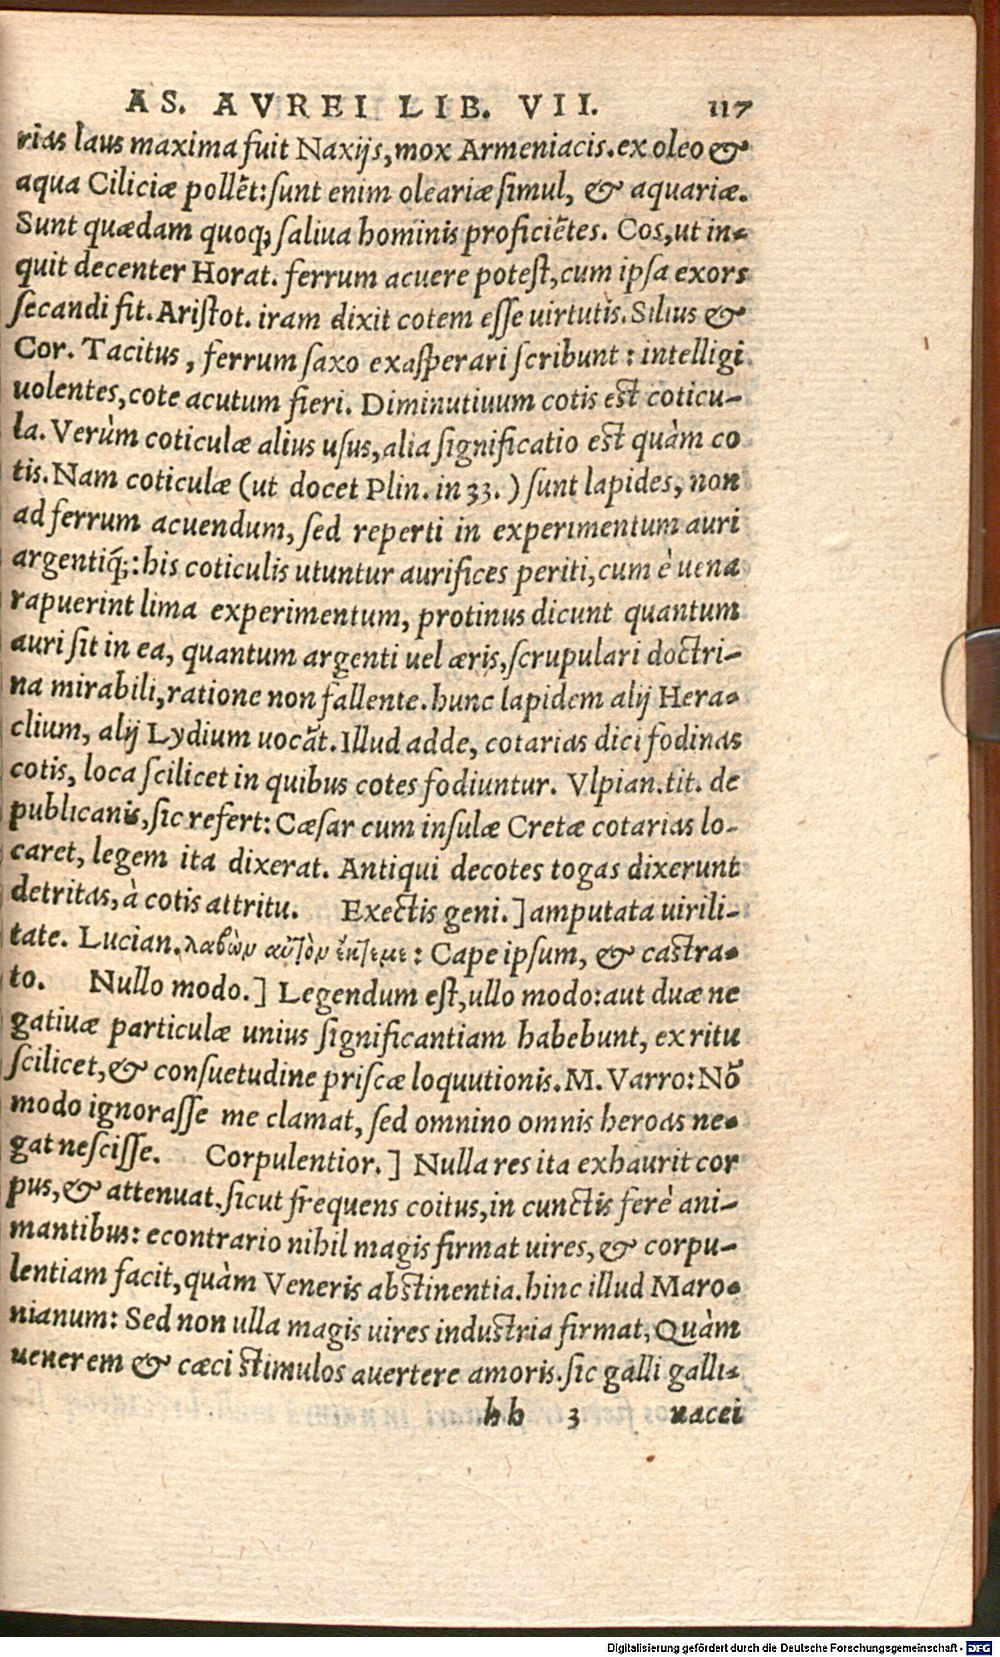 AS. AVREI LIB. VII. 117
rias laus maxima fuit Naxijs, mox Armeniacis. ex oleo &
aqua Ciliciæ pollẽt: sunt enim oleariæ simul, & aquariæ.
Sunt quædam quoq; saliua hominis proficiẽtes. Cos, ut in-
quit decenter Horat. ferrum acuere potest, cum ipsa exors
secandi sit. Aristot. iram dixit cotem esse uirtutis. Silius &
Cor. Tacitus, ferrum saxo exasperari scribunt: intelligi
uolentes, cote acutum fieri. Diminutiuum cotis est coticu-
la. Verùm coticulæ alius usus, alia significatio est quàm co
tis. Nam coticulæ (ut docet Plin. in 33.) sunt lapides, non
ad ferrum acuendum, sed reperti in experimentum auri
argentiq́;: his coticulis utuntur aurifices periti, cum è uena
rapuerint lima experimentum, protinus dicunt quantum
auri sit in ea, quantum argenti uel æris, scrupulari doctri-
na mirabili, ratione non fallente. hunc lapidem alij Hera-
clium, alij Lydium uocãt. Illud adde, cotarias dici fodinas
cotis, loca scilicet in quibus cotes fodiuntur. Vlpian. tit. de
publicanis, sic refert: Cæsar cum insulæ Cretæ cotarias lo-
caret, legem ita dixerat. Antiqui decotes togas dixerunt
detritas, à cotis attritu. Exectis geni.] amputata uirili-
tate. Lucian. λαβὼν αὐτὸν ἔκτεμε: Cape ipsum, & castra-
to. Nullo modo.] Legendum est, ullo modo: aut duæ ne
gatiuæ particulæ unius significantiam habebunt, ex ritu
scilicet, & consuetudine priscæ loquutionis. M. Varro: Nõ
modo ignorasse me clamat, sed omnino omnis heroas ne-
gat nescisse. Corpulentior.] Nulla res ita exhaurit cor
pus, & attenuat. sicut frequens coitus, in cunctis ferè ani-
mantibus: econtrario nihil magis firmat uires, & corpu-
lentiam facit, quàm Veneris abstinentia. hinc illud Maro-
nianum: Sed non ulla magis uires industria firmat, Quàm
uenerem & cæci stimulos auertere amoris. sic galli galli-
hh 3 nacei
Digitalisierung gefördert durch die Deutsche Forschungsgemeinschaft - DFG